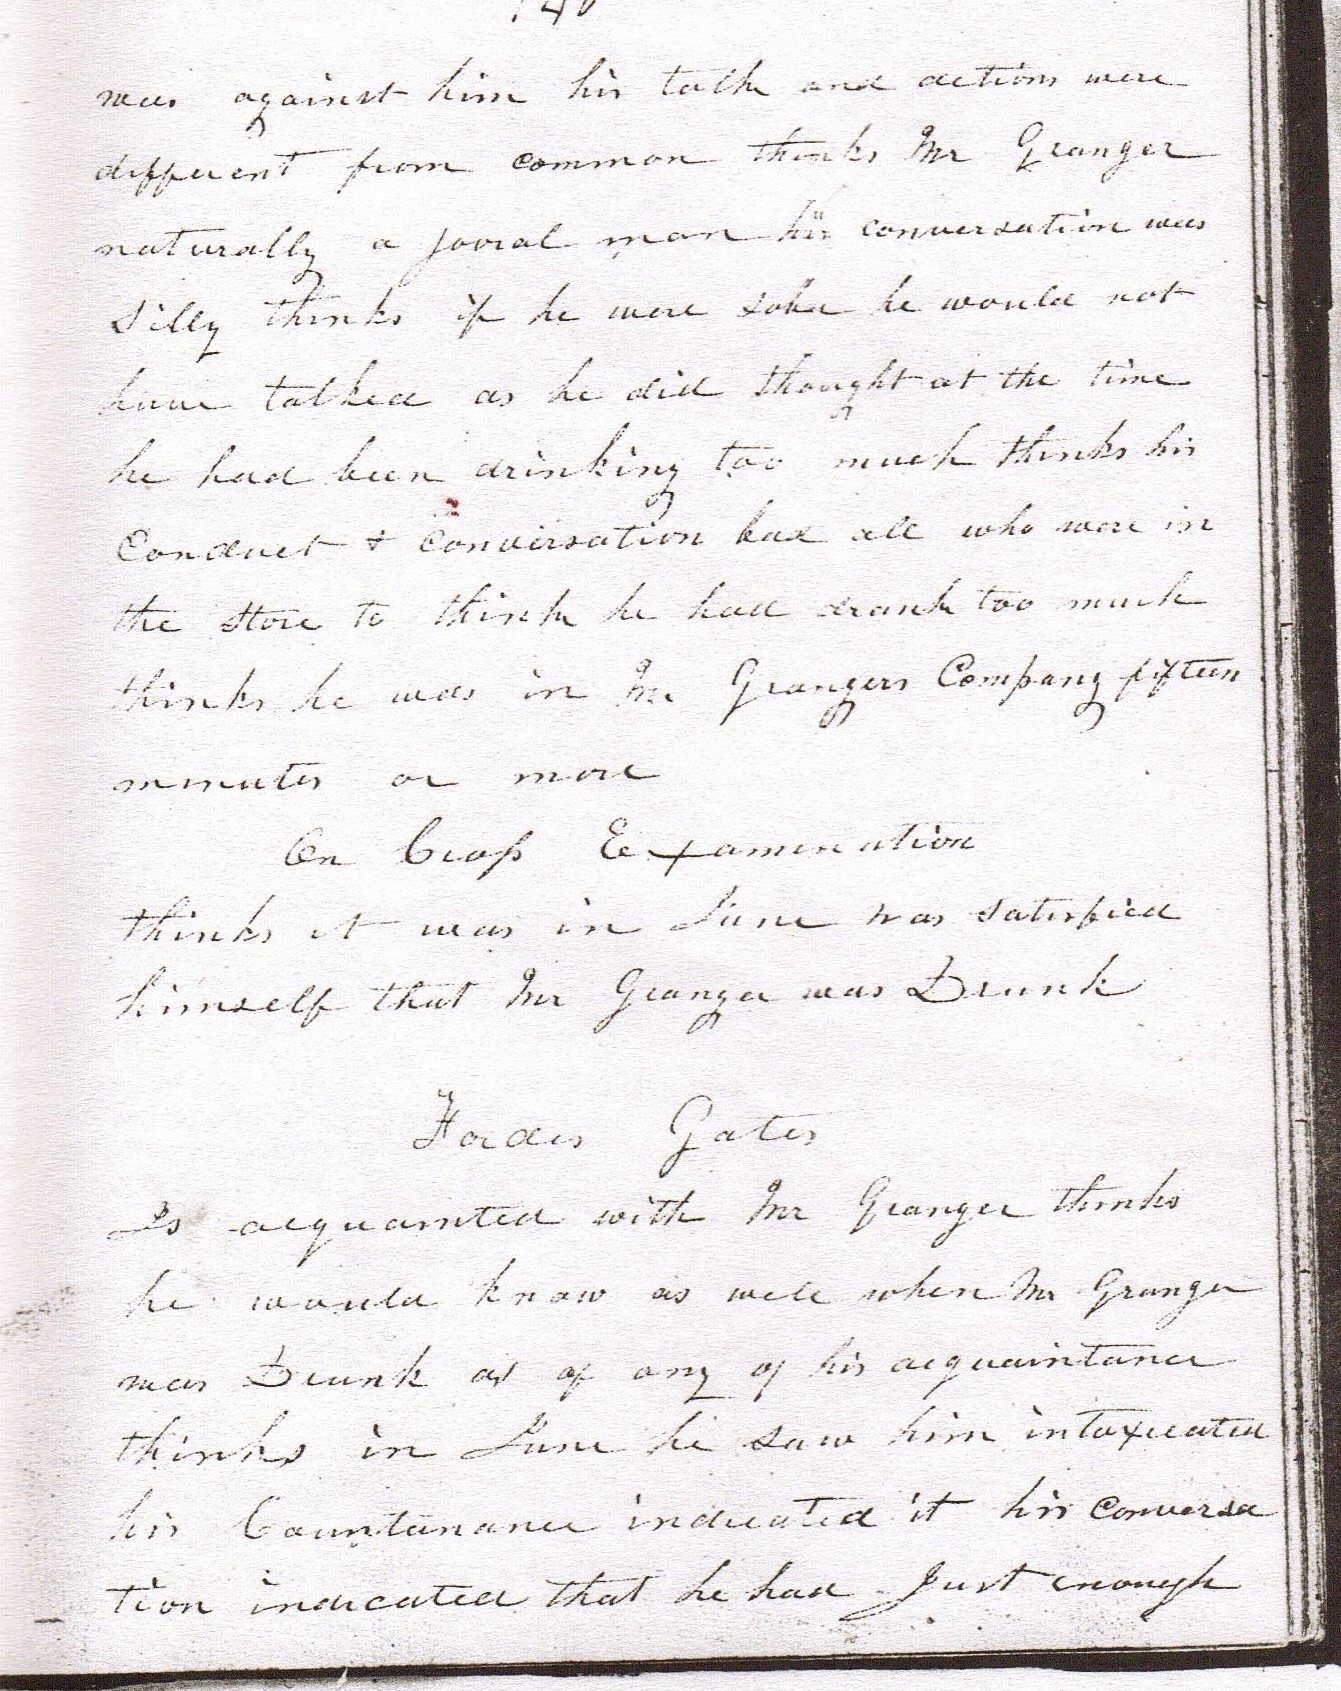 was against him his talk and actions were
different from common thinks Mr Granger
naturally a jovial man his conversation was
silly thinks if he were sober he would not
have talked as he did thought at the time
he had been drinking too much thinks his
Conduct & Conversation had all who were in
the store to think he had drank too much
thinks he was in Mr Grangers Company fifteen
minutes or more
On Cross Examination
thinks it was in June was satisfied
himself that Mr Granger was Drunk
Fordes Gates
Is acquainted with Mr Granger thinks
he would know as well when Mr Granger
was Drunk as of any of his acquaintance
thinks in June he saw him intoxicated
his Countanance indicated it his Conversa
tion indicated that he had Just enough